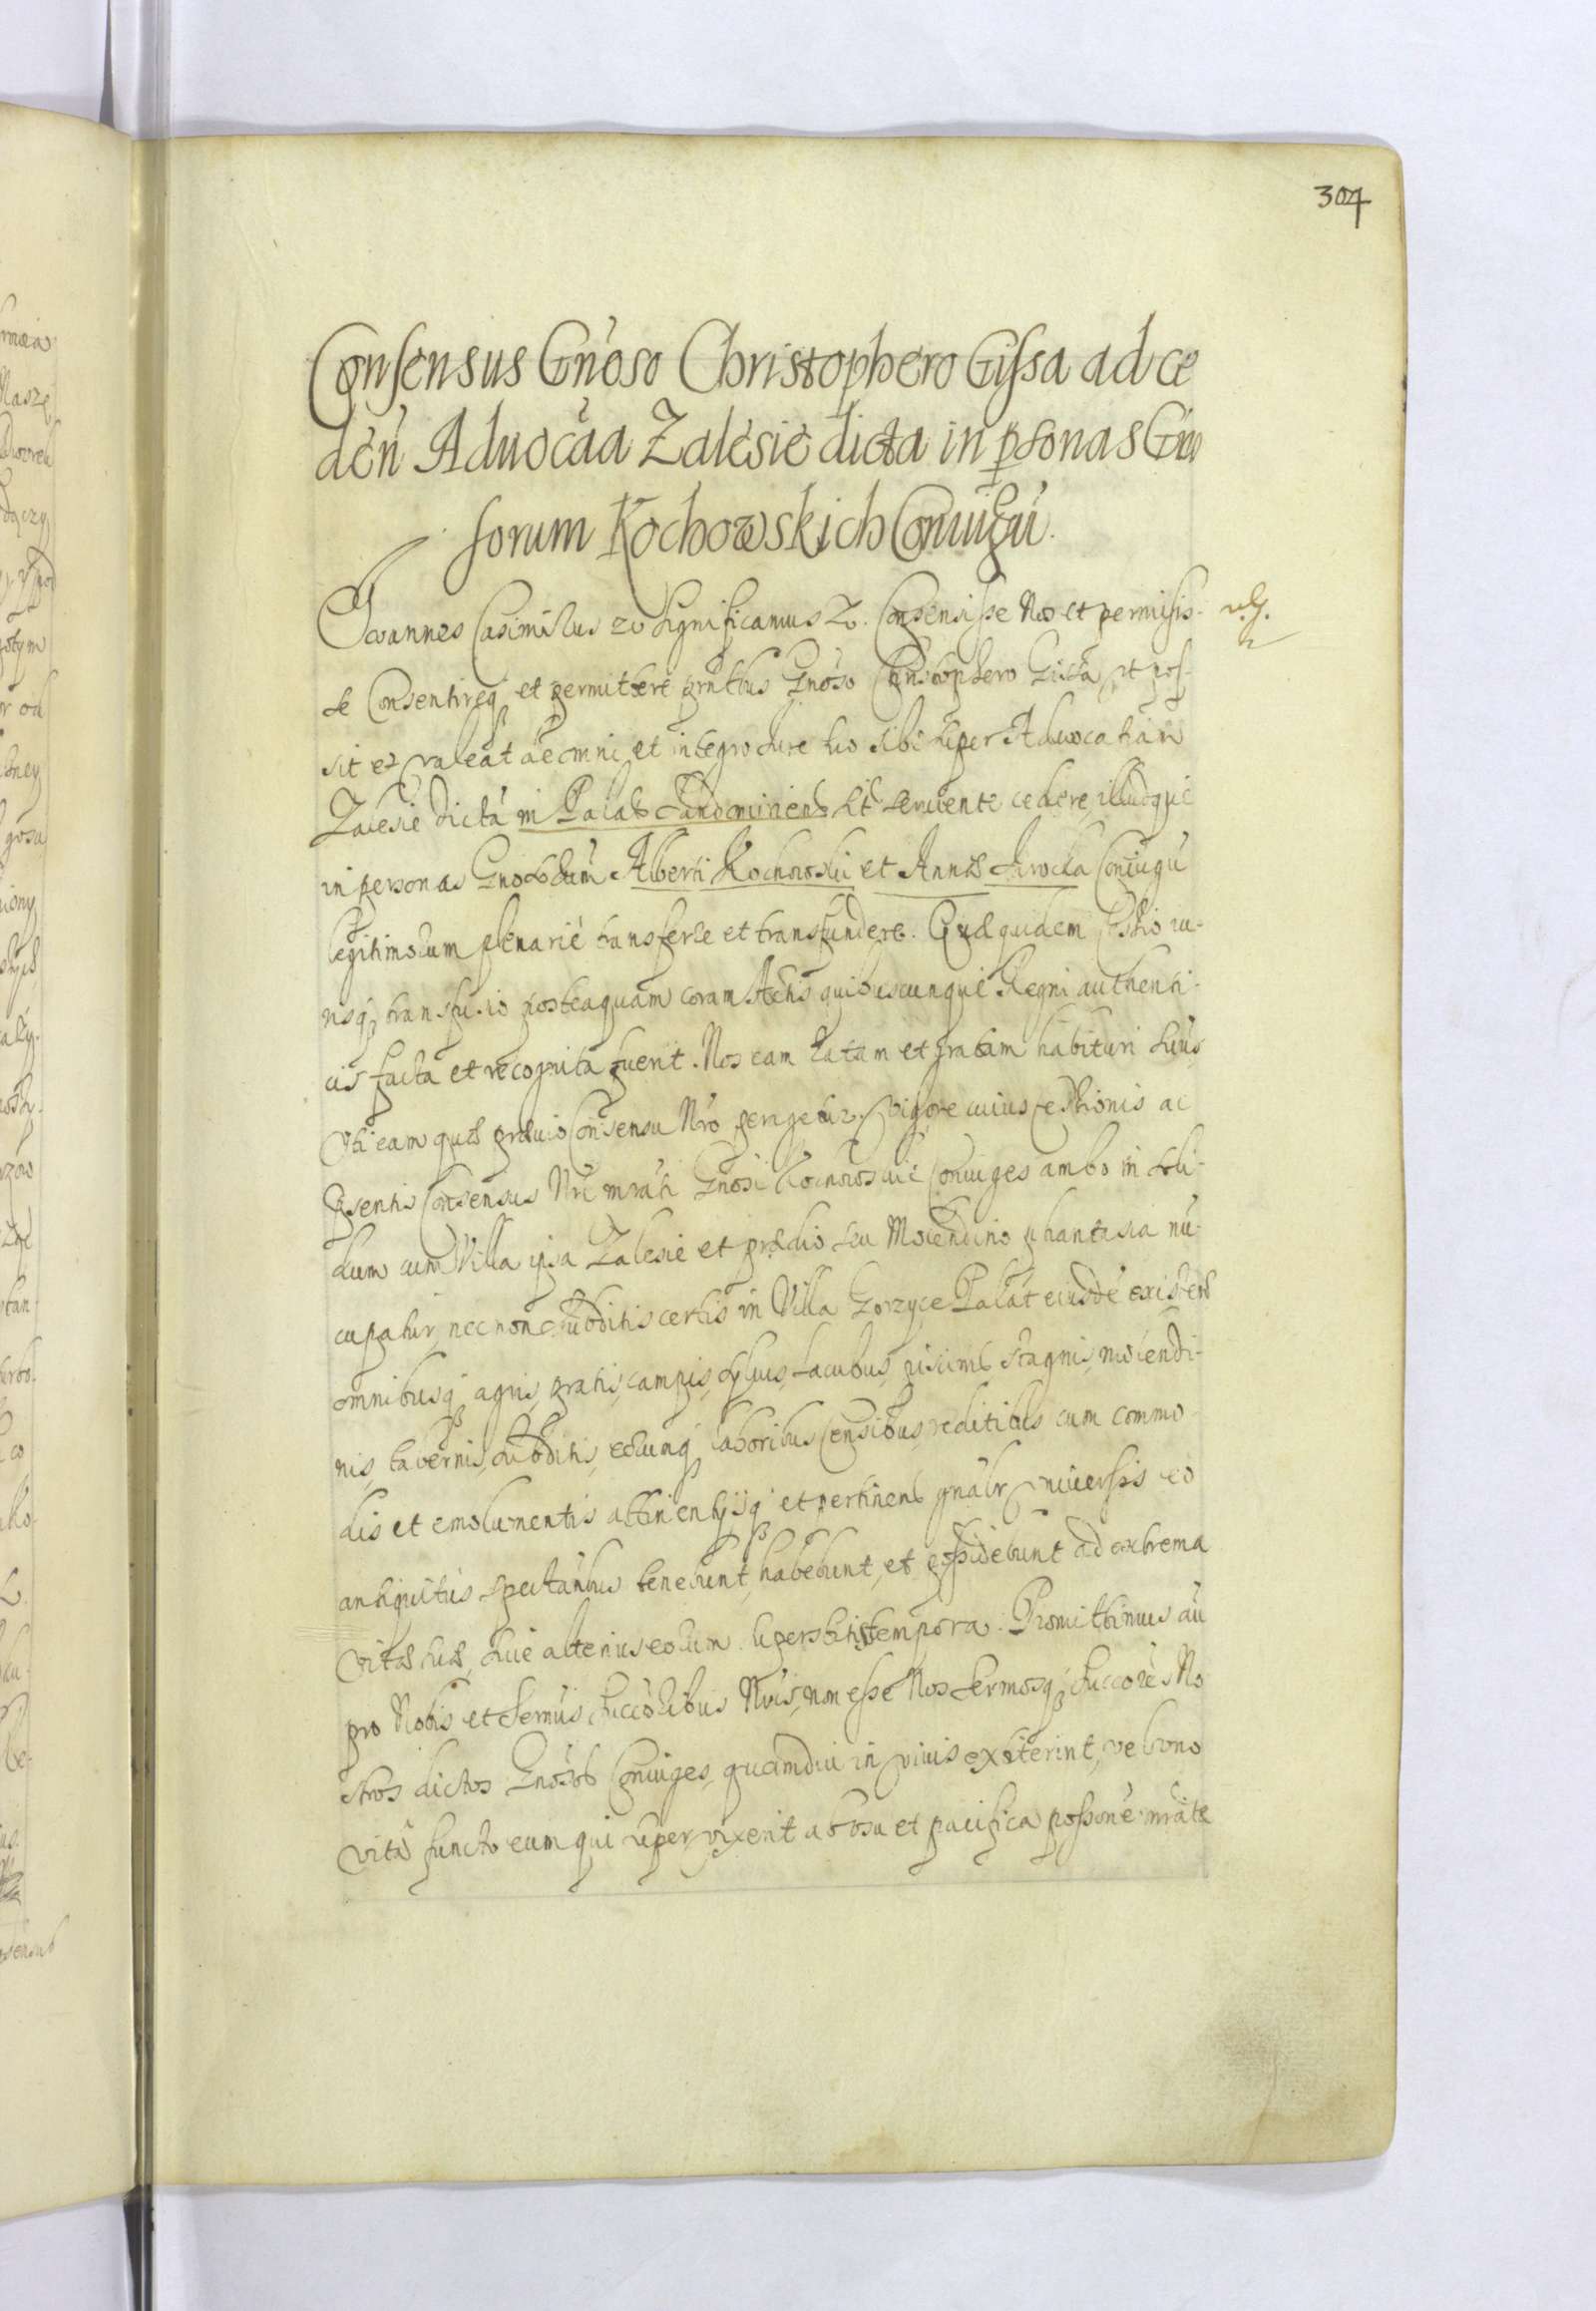 304
Consensus Gnoso Christophero Gissa ad ce
den Aduocãa Zalesie dicta in psonas Gno
sorum Kochowskich Coniugũ.
Joannes Casimirus etc Significamus etc. Consensisse Nos et permisis-
se Consentireq et permittere pntibus Gnoso Christophero Gissa, ut pos-
sit et valeat de omni et integro Jure suo sibi super Aduocatiam
Zalesie dictã in Palatt Sandomiriens sit seruiente cedere, illudque
in personas Gnosorum Alberti Kochowski et Annæ Coniugũ
legitimorum plenarié transferre et transfundere. Quæ quidem Cessio iu-
risq transfusio posteaquam coram Actis quibuscunque Regni authenti-
cis facta et recognita fuerit. Nos eam ratam et gratam habituri sumus
Vti eam quæ præuio Consensu Nro peragetur. Vigore cuius Cessionis ac
pñsentis Consensus Nri mrati Gnosi Kochowscii Coniuges ambo in soli-
dum cum Villa ipsa Zalesie et prædio seu Molendino phantasia nũ-
cupatur, nec non subditis certis in Villa Gorzyce Palat eiusdẽ existen
omnibusq agris, pratis, campis, syluis, Lacubus, piscinis, Stagnis, molendi-
nis, tabernis, subditis, eorumq laboribus Censibus, reditibus cum commo
dis et emolumentis attinentijsq et pertinens gnalr vniuersis eo
antiquitus spectantibus tenebunt, habebunt, et possidebunt ad extrema
vitæ suæ, siue alterius eorum superstitis tempora. Promittimus aũ
pro Nobis et Sermis Succoribus Nris, non esse Nos Sermosq Succores No
stros dictos Gnosos Coniuges, quamdiu in viuis extiterint, vel vno
vitâ functo eum qui super vixerit ab vsu et pacifica possone mrate